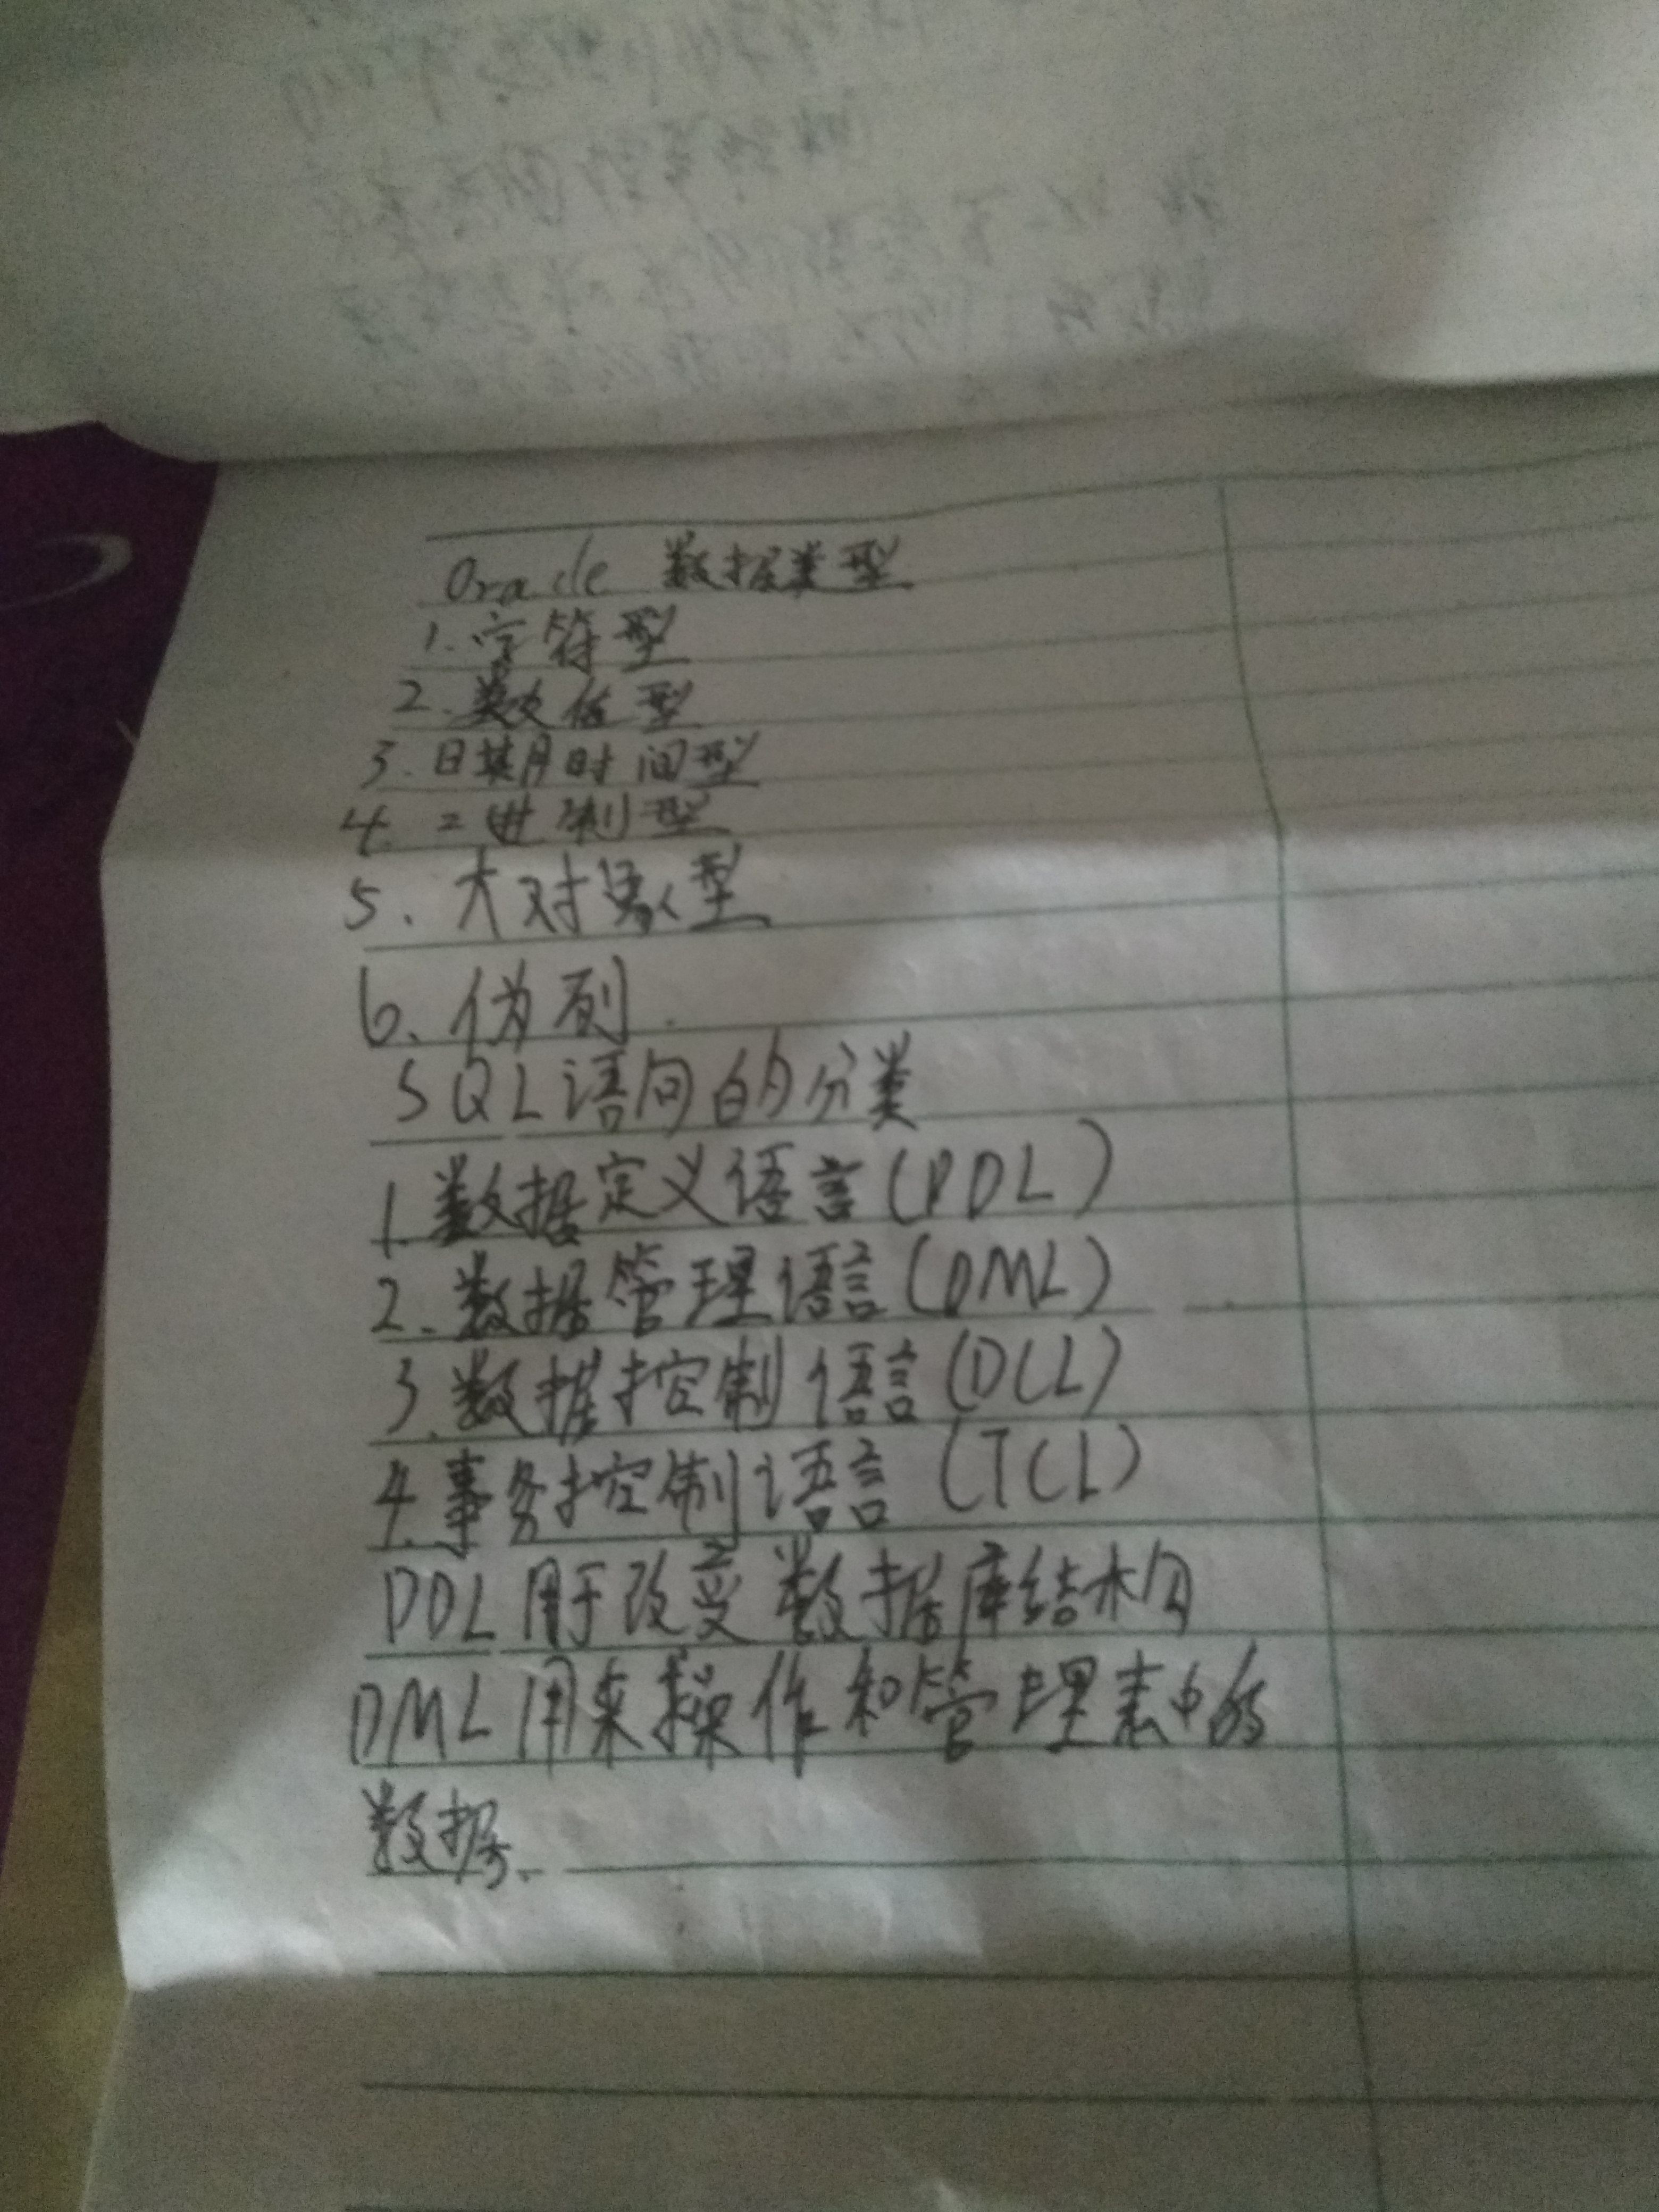 Oracle 数据类型
1.字符型
2.数值型
3.日期时间型
4.二进制型
5.大对象型
6.伪列.
SQL语句的分类
1.数据定义语言(DDL)
2.数据管理语言(DML)
3.数据控制语言(DCL)
4.事务控制语言(TCL)
DDL用于改变数据库结构
DML用来操作和管理表中的
数据.